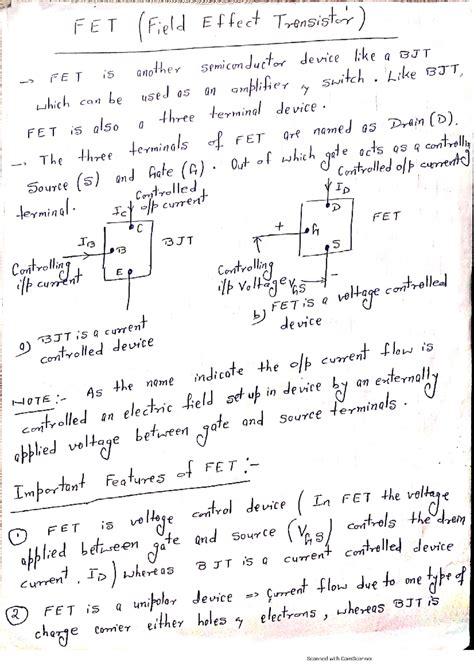 FET (Field Effect Transistor)
→ FET is another semiconductor device like a BJT
which can be used as an amplifier & switch. Like BJT,
FET is also a three terminal device.
→ The three terminals of FET are named as Drain (D).
Source (S) and Gate (G). Out of which gate acts as a controlling
terminal.
Controlled
o/p current
IC
C
IB
B
BJT
E
Controlling
i/p current
a) BJT is a current
controlled device
Controlled o/p current
ID
D
FET
+
G
S
-
Controlling
i/p Voltage VGS
b) FET is a voltage controlled
device
NOTE:- As the name indicate the o/p current flow is
controlled an electric field set up in device by an externally
applied voltage between gate and source terminals.
Important Features of FET:-
① FET is voltage control device (In FET the voltage
applied between gate and source (VGS) controls the drain
current. ID) whereas BJT is a current controlled device
② FET is a unipolar device => Current flow due to one type of
charge carrier either holes & electrons, whereas BJT is
Scanned with CamScanner